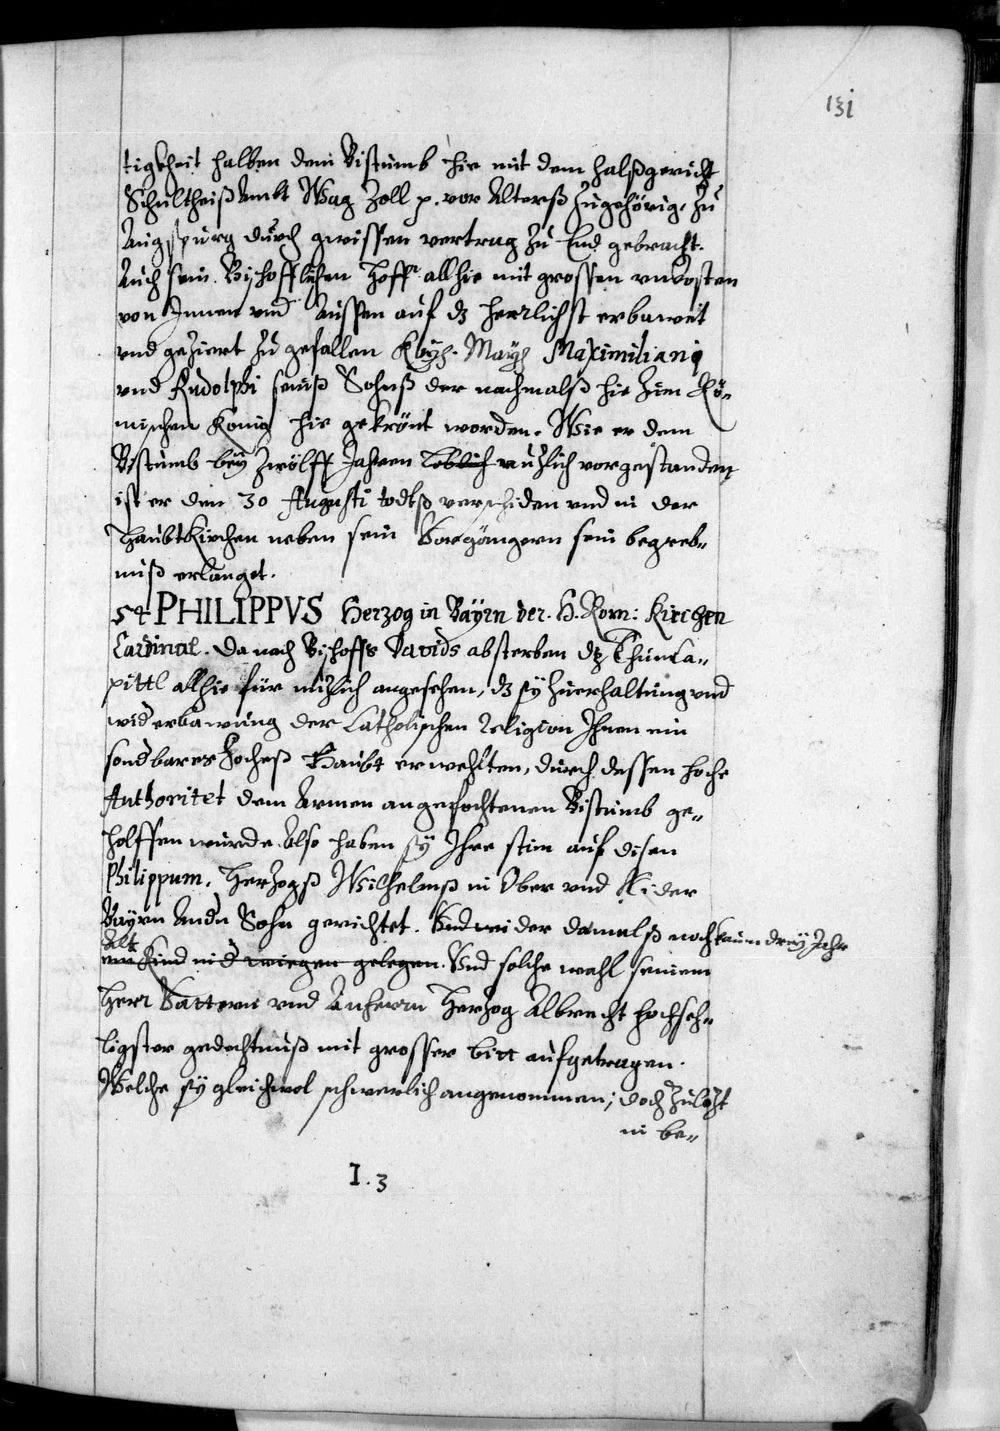 131
tigkheit halben dem Bistumb hie mit dem halßgericht
Schultheiß Ambt Wag Zoll p. vor Alterß zugehörig, zu
Augspurg durch gwissen vertrag zu End gebracht.
Auch sein Bischofflichen Hoff allhie mit grossen vnkosten
von Innen vnd Aussen auf dz herrlichst erbawet
vnd geziert zu gefallen Kay. May. Maximiliani
vnd Rudolphi seinß Sohnß der nachmalß hie zum Rö-
mischen König hie gekrönt worden. Wie er dem
Bistumb bey zwölff Jahren loblich nuzlich vorgestanden,
ist er den 30 Augusti todtß verschiden vnd in der
Haubtkirchen neben sein Vorgängern sein begreb-
nuß erlanget.
54 PHILIPPVS Herzog in Bayrn der. H. Rom: Kirchen
Cardinal. Da nach Bischoffs Davids absterben dz Thumca-
pittl allhie für nuzlich angesehen, dz sy zuerhaltung vnd
widerbawung der Catholischen Religion Ihnen ein
sondbares hoheß Haubt erwehlten, durch dessen hohe
Authoritet dem Armen angefochtenen Bistumb ge-
holffen wurde. Also haben sy Ihre stim auf disen
Philippum, Herzogß Wilhelmß in Ober vnd Nider
Bayrn Andn Sohn gerichtet. Vnd wider damalß noch kaum drey Jahr
alt
ein Kind in d wiegen gelegen. Vnd solche wahl seinem
Herr Vattern vnd Anherrn Herzog Albrecht hochseh-
ligster gedechtnuß mit grosser bitt aufgetragen.
Welche sy gleichwol schwerlich angenommen; doch zulest
in be-
I.3